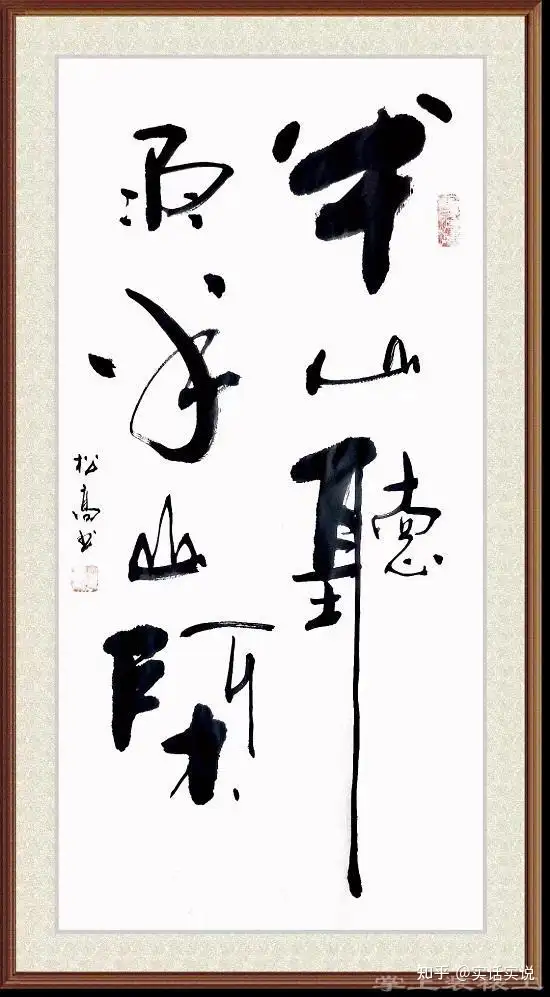 半山聽
雨半山閑
松高书
知乎 @实话实说